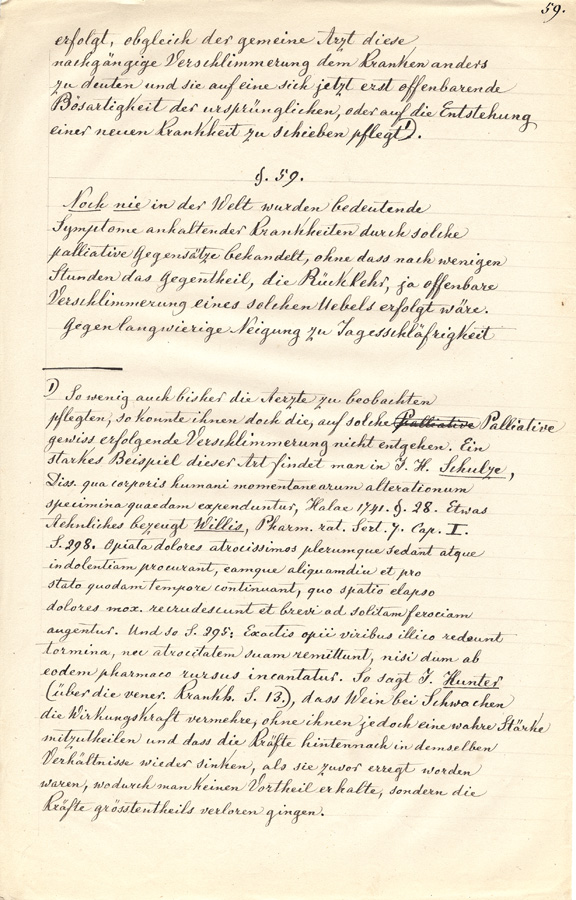 59.
erfolgt, obgleich der gemeine Arzt diese
nachgängige Verschlimmerung dem Kranken anders
zu deuten und sie auf eine sich jetzt erst offenbarende
Bösartigkeit der ursprünglichen, oder auf die Entstehung
einer neuen Krankheit zu schieben pflegt 1).
§. 59.
Noch nie in der Welt wurden bedeutende
Symptome anhaltender Krankheiten durch solche
palliative Gegensätze behandelt, ohne dass nach wenigen
Stunden das Gegentheil, die Rückkehr, ja offenbare
Verschlimmerung eines solchen Uebels erfolgt wäre.
Gegen langwierige Neigung zu Tagesschläfrigkeit
1) So wenig auch bisher die Aerzte zu beobachten
pflegten, so konnte ihnen doch die, auf solche Palliative Palliative
gewiss erfolgende Verschlimmerung nicht entgehen. Ein
starkes Beispiel dieser Art findet man in J. H. Schulze,
Diss. qua corporis humani momentanearum alterationum
specimina quaedam expenduntur, Halae 1741. §. 28. Etwas
Aehnliches bezeugt Willis, Pharm. rat. Sect. 7. Cap. I.
S. 298. Opiata dolores atrocissimos plerumque sedant atque
indolentiam procurant, eamque aliquamdiu et pro
stato quodam tempore continuant, quo spatio elapso
dolores mox recrudescunt et brevi ad solitam ferociam
augentur. Und so S. 295: Exactis opii viribus illico redeunt
tormina, nec atrocitatem suam remittunt, nisi dum ab
eodem pharmaco rursus incantatur. So sagt J. Hunter
(über die vener. Krankh. S. 13.), dass Wein bei Schwachen
die Wirkungskraft vermehre, ohne ihnen jedoch eine wahre Stärke
mitzutheilen und dass die Kräfte hintennach in demselben
Verhältnisse wieder sinken, als sie zuvor erregt worden
waren, wodurch man keinen Vortheil erhalte, sondern die
Kräfte grösstentheils verloren gingen.